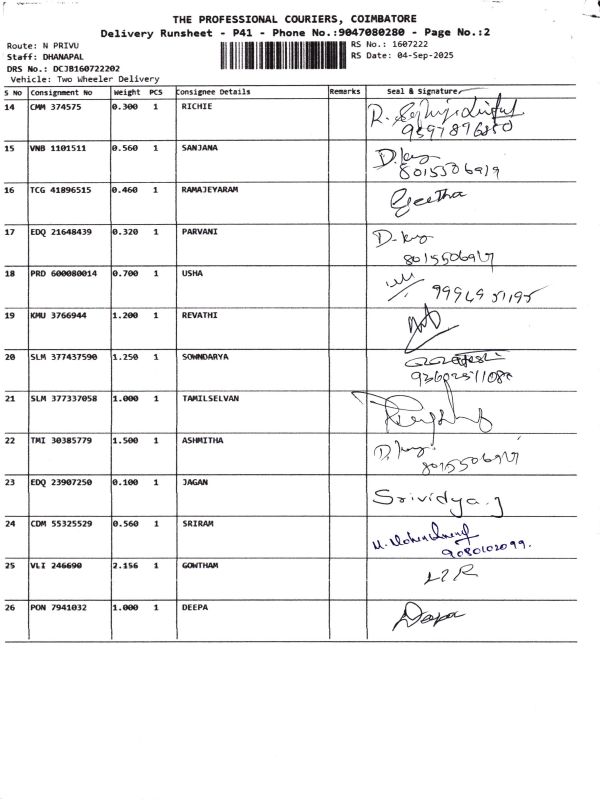 THE PROFESSIONAL COURIERS, COIMBATORE
Delivery Runsheet - P41 - Phone No.:9047080280 - Page No.:2
Route: N PRIVU
RS No.: 1607222
Staff: DHANAPAL
RS Date: 04-Sep-2025
DRS No.: DCJB160722202
Vehicle: Two Wheeler Delivery
S No Consignment No Weight PCS Consignee Details Remarks Seal & Signature
14 CMM 374575 0.300 1 RICHIE R.
15 VNB 1101511 0.560 1 SANJANA
16 TCG 41896515 0.460 1 RAMAJEYARAM Geetha
17 EDQ 21648439 0.320 1 PARVANI
18 PRD 600080014 0.700 1 USHA
19 KMU 3766944 1.200 1 REVATHI
20 SLM 377437590 1.250 1 SOWNDARYA
21 SLM 377337058 1.000 1 TAMILSELVAN
22 TMI 30385779 1.500 1 ASHMITHA
23 EDQ 23907250 0.100 1 JAGAN Srividya.J
24 CDM 55325529 0.560 1 SRIRAM
9080102099.
25 VLI 246690 2.156 1 GOWTHAM
26 PON 7941032 1.000 1 DEEPA Deepa